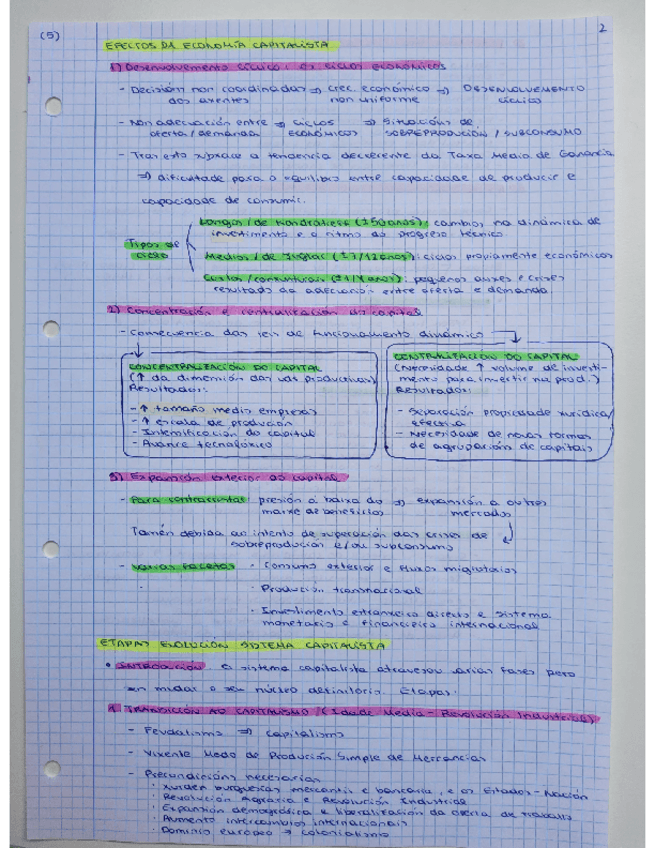 (5)
2
EFECTOS DA ECONOMÍA CAPITALISTA
1) Desenvolvemento cíclico: os ciclos económicos
- Decisións non coordinadas ⇒ crec. económico ⇒ DESENVOLVEMENTO
dos axentes non uniforme cíclico
- Non adecuación entre ⇒ ciclos ⇒ Situacións de
oferta/demanda ECONÓMICOS SOBREPRODUCIÓN / SUBCONSUMO
- Tras esto subxace a tendencia decrecente da Taxa Media de Ganancia
⇒ dificultade para o equilibrio entre capacidade de producir e
capacidade de consumir.
Tipos de
ciclo
Longos / de Kondrátiev (±50 anos): cambios na dinámica de
investimento e o ritmo do progreso técnico
Medios / de Juglar (±7/12 anos): ciclos propiamente económicos
Curtos / conxunturais (±1/4 anos): pequenos auxes e crises
resultado da adecuación entre oferta e demanda.
2) Concentración e centralización do capital
- Consecuencia das leis de funcionamento dinámico
CONCENTRALIZACIÓN DO CAPITAL
(↑ da dimensión das uds productivas)
Resultados:
- ↑ tamaño medio empresas
- ↑ escala de produción
- Intensificación do capital
- Avance tecnolóxico
CENTRALIZACIÓN DO CAPITAL
(Necesidade ↑ volume de investi-
mento para investir na prod.)
Resultados:
- Separación propiedade xurídica/
efectiva
- Necesidade de novas formas
de agrupación de capitais
3) Expansión exterior do capital
- Para contrarrestar presión á baixa do ⇒ expansión a outros
marxe de beneficios mercados
Tamén debida ao intento de superación das crises de
sobreprodución e/ou subconsumo
- Varias facetas · Comercio exterior e fluxos migratorios
· Produción transnacional
· Investimento estranxeiro directo e sistema
monetario e financeiro internacional
ETAPAS EVOLUCIÓN SISTEMA CAPITALISTA
• INTRODUCIÓN: o sistema capitalista atravesou varias fases pero
sen mudar o seu núcleo definitorio. Etapas:
1. TRANSICIÓN AO CAPITALISMO / (Idade Media - Revolución Industrial)
- Feudalismo ⇒ Capitalismo
- Vixente Modo de Produción Simple de Mercancías
- Precondicións necesarias
· Xurden burguesías mercantís e bancaria, e os Estados-Nación
· Revolución Agraria e Revolución Industrial
· Expansión demográfica e liberalización da oferta de traballo
· Aumento intercambios internacionais
· Dominio europeo → colonialismo